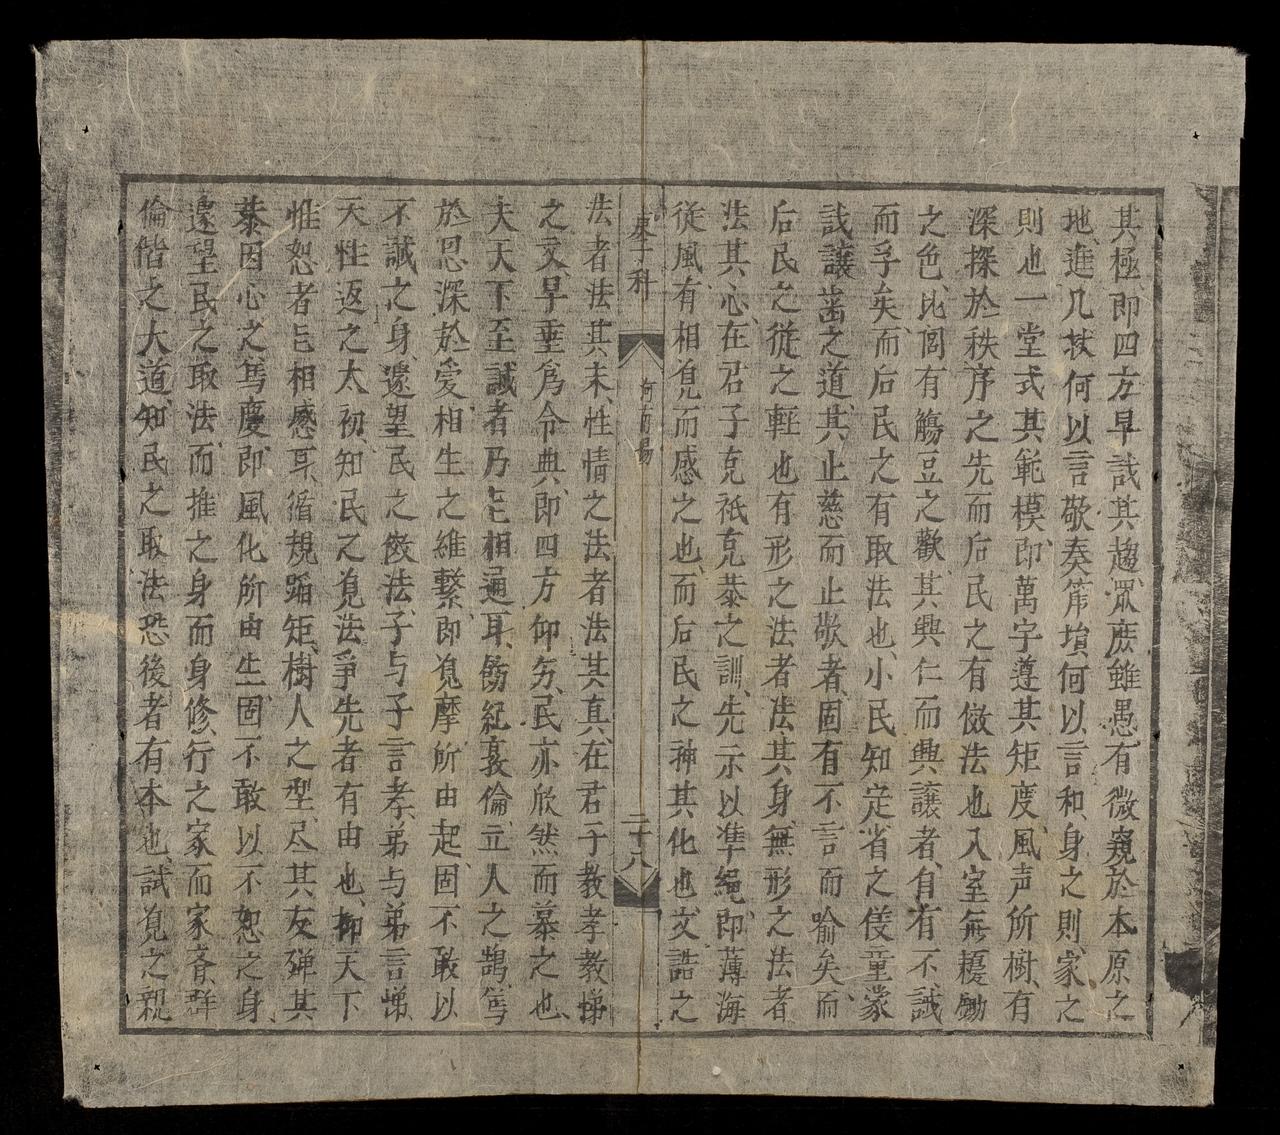 其極、即四方早試其趨、眾庶雖愚、有微窺於本原之
地、進几杖何以言敬、奏箎塤何以言和、身之則、家之
則也、一堂式其範模、即萬宇遵其矩度、風声所樹、有
深探於秩序之先、而后民之有倣法也、入室無耰鋤
之色、比閭有觴豆之歡、其興仁而興讓者、自有不誠
而孚矣、而后民之有取法也、小民知定省之儀、童蒙
試讓齒之道、其止慈而止敬者、固有不言而喻矣、而
后民之從之輕也、有形之法者法其身、無形之法者
法其心、在君子克祇克恭之訓、先示以準繩、即薄海
從風、有相覓而感之也、而后民之神其化也、文誥之
庚子科
河南場
二十八
法者法其末、性情之法者法其真、在君子教孝教悌
之文、早垂為令典、即四方仰芳、民亦欣然而慕之也、
夫天下至誠者乃乞相通耳、飭紀敦倫、立人之鵠、篤
於恩、深於愛、相生之維繫、即覓摩所由起、固不敢以
不誠之身、遠望民之倣法、子与子言孝、弟与弟言悌、
天性返之太初、知民之覓法爭先者有由也、抑天下
惟恕者乞相感耳、循規蹈矩、樹人之型、尽其友、殫其
恭、因心之篤慶、即風化所由生、固不敢以不恕之身、
遽望民之取法、而推之身而身修、行之家而家斉、群
倫偕之大道、知民之取法恐後者有本也、試覓之親